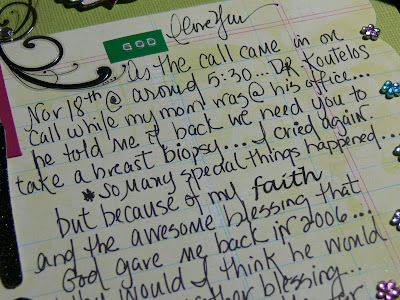 I love You
GOD
as the call came in on
Nov 18th @ around 5:30... DR Koutelos
call while my mom was @ his office...
he told me back we need you to
take a breast biopsy.... I cried again.
*so many special things happened...
but because of my faith
and the awesome blessing that
God gave me back in 2006...
would I think he would
another blessing...